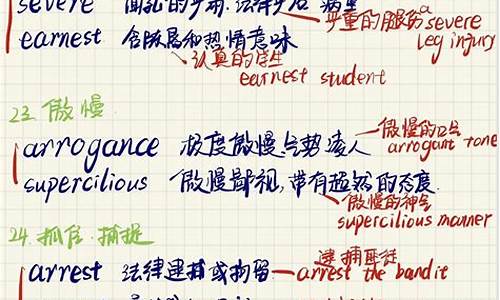 severe
严重的腿伤 a severe
leg injury
earnest 含殷局和热情意味
认真的学生
earnest student
23. 傲慢
arrogance 极度傲慢,气势凌人
傲慢的口气
arrogant tone
supercilious 傲慢鄙视,带有超然的态度
傲慢的神气
supercilious manner
24. 抓住.捕捉
arrest 法律逮捕或拘留
逮捕匪徒
arrest the bandit